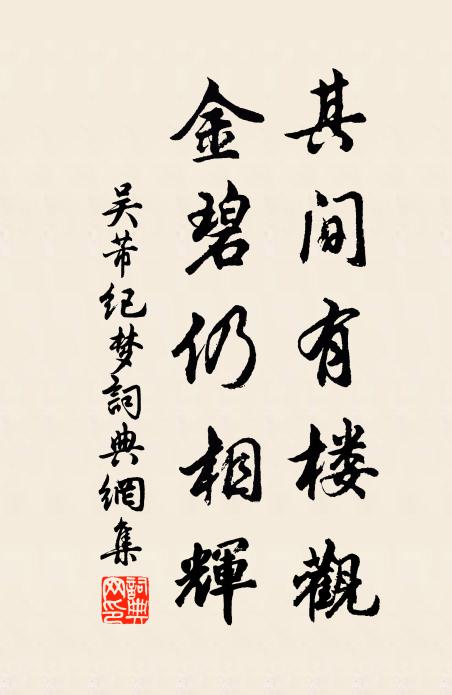 其间有楼觀
金碧仍相輝
吴芾纪梦詞典網集
詞典网印